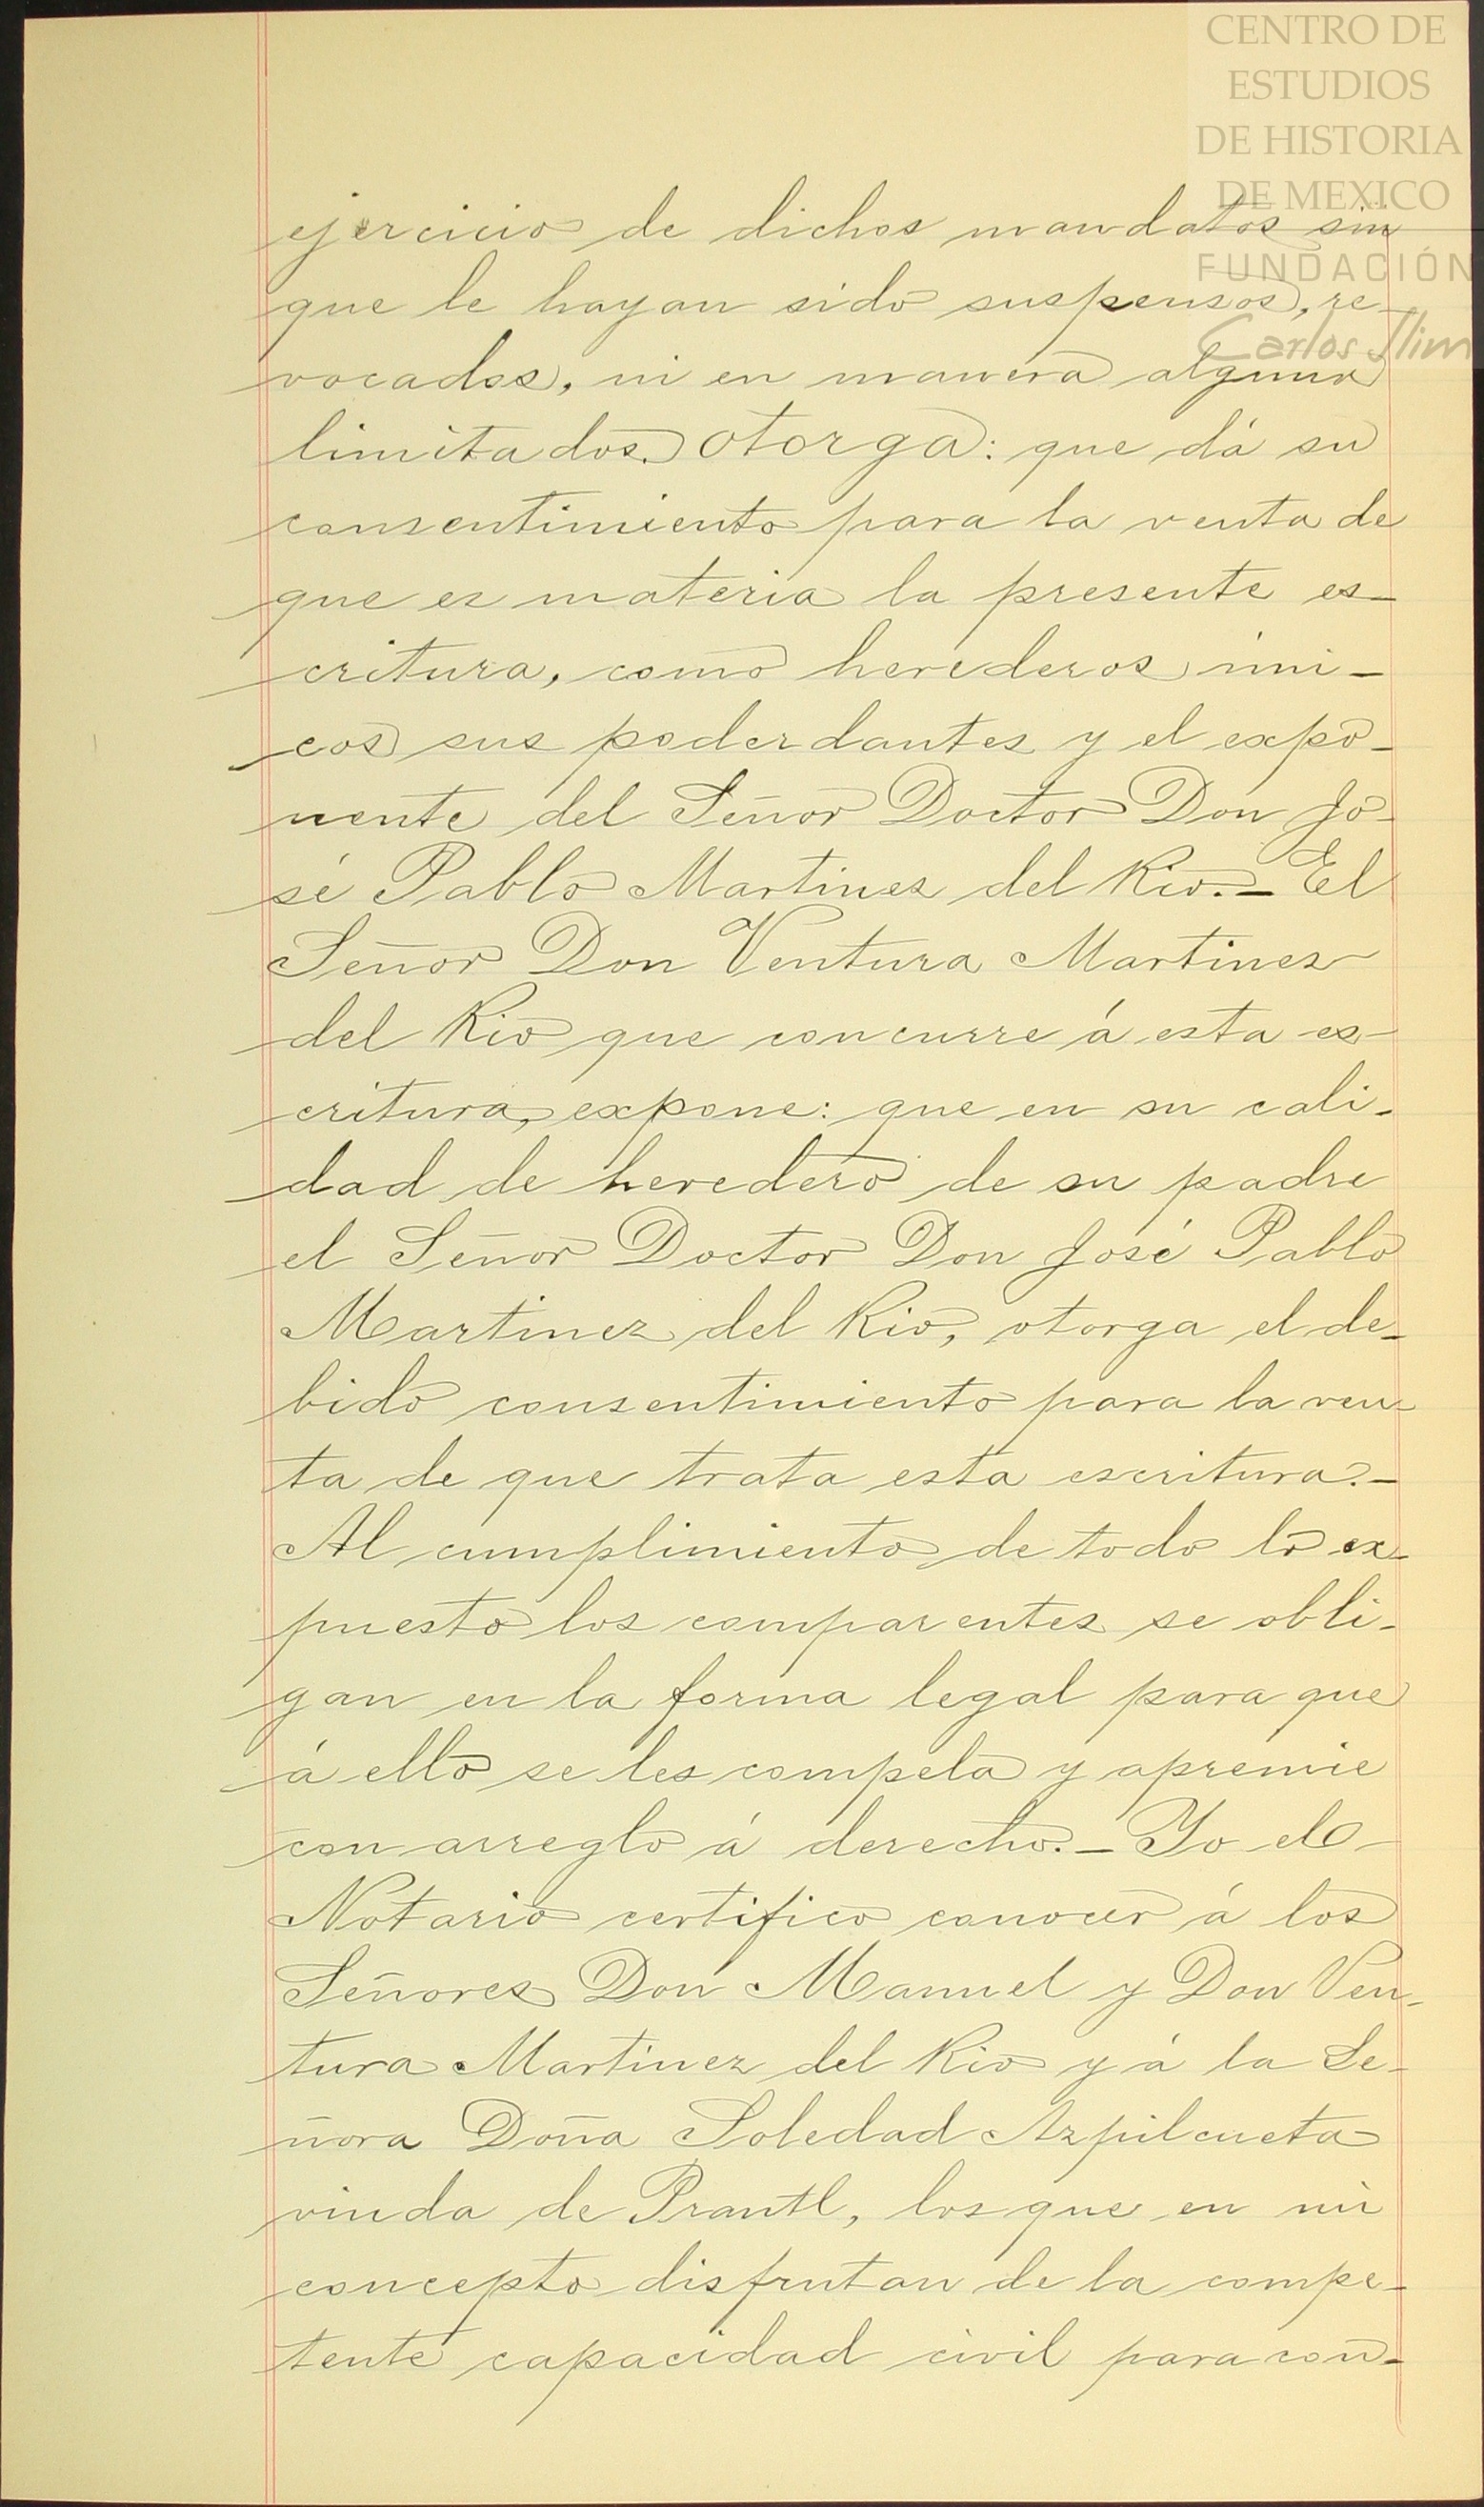 CENTRO DE
ESTUDIOS
DE HISTORIA
DE MEXICO
FUNDACIÓN
Carlos Slim
ejercicio de dichos mandatos sin
que le hayan sido suspensos, re-
vocados, ni en manera alguna
limitados. Otorga: que dá su
consentimiento para la venta de
que es materia la presente es-
critura, como herederos úni-
cos sus poderdantes y el expo-
nente del Señor Doctor Don Jo-
sé Pablo Martinez del Rio.- El
Señor Don Ventura Martinez
del Rio que concurre á esta es-
critura, expone: que en su cali-
dad de heredero de su padre
el Señor Doctor Don José Pablo
Martinez del Rio, otorga el de-
bido consentimiento para la ven-
ta de que trata esta escritura.-
Al cumplimiento de todo lo ex-
puesto los comparentes se obli-
gan en la forma legal para que
á ello se les compela y apremie
con arreglo á derecho.- Yo el
Notario certifico conocer á los
Señores Don Manuel y Don Ven-
tura Martinez del Rio y á la Se-
ñora Doña Soledad Azpilcueta
viuda de Prantl, los que en mi
concepto disfrutan de la compe-
tente capacidad civil para con-